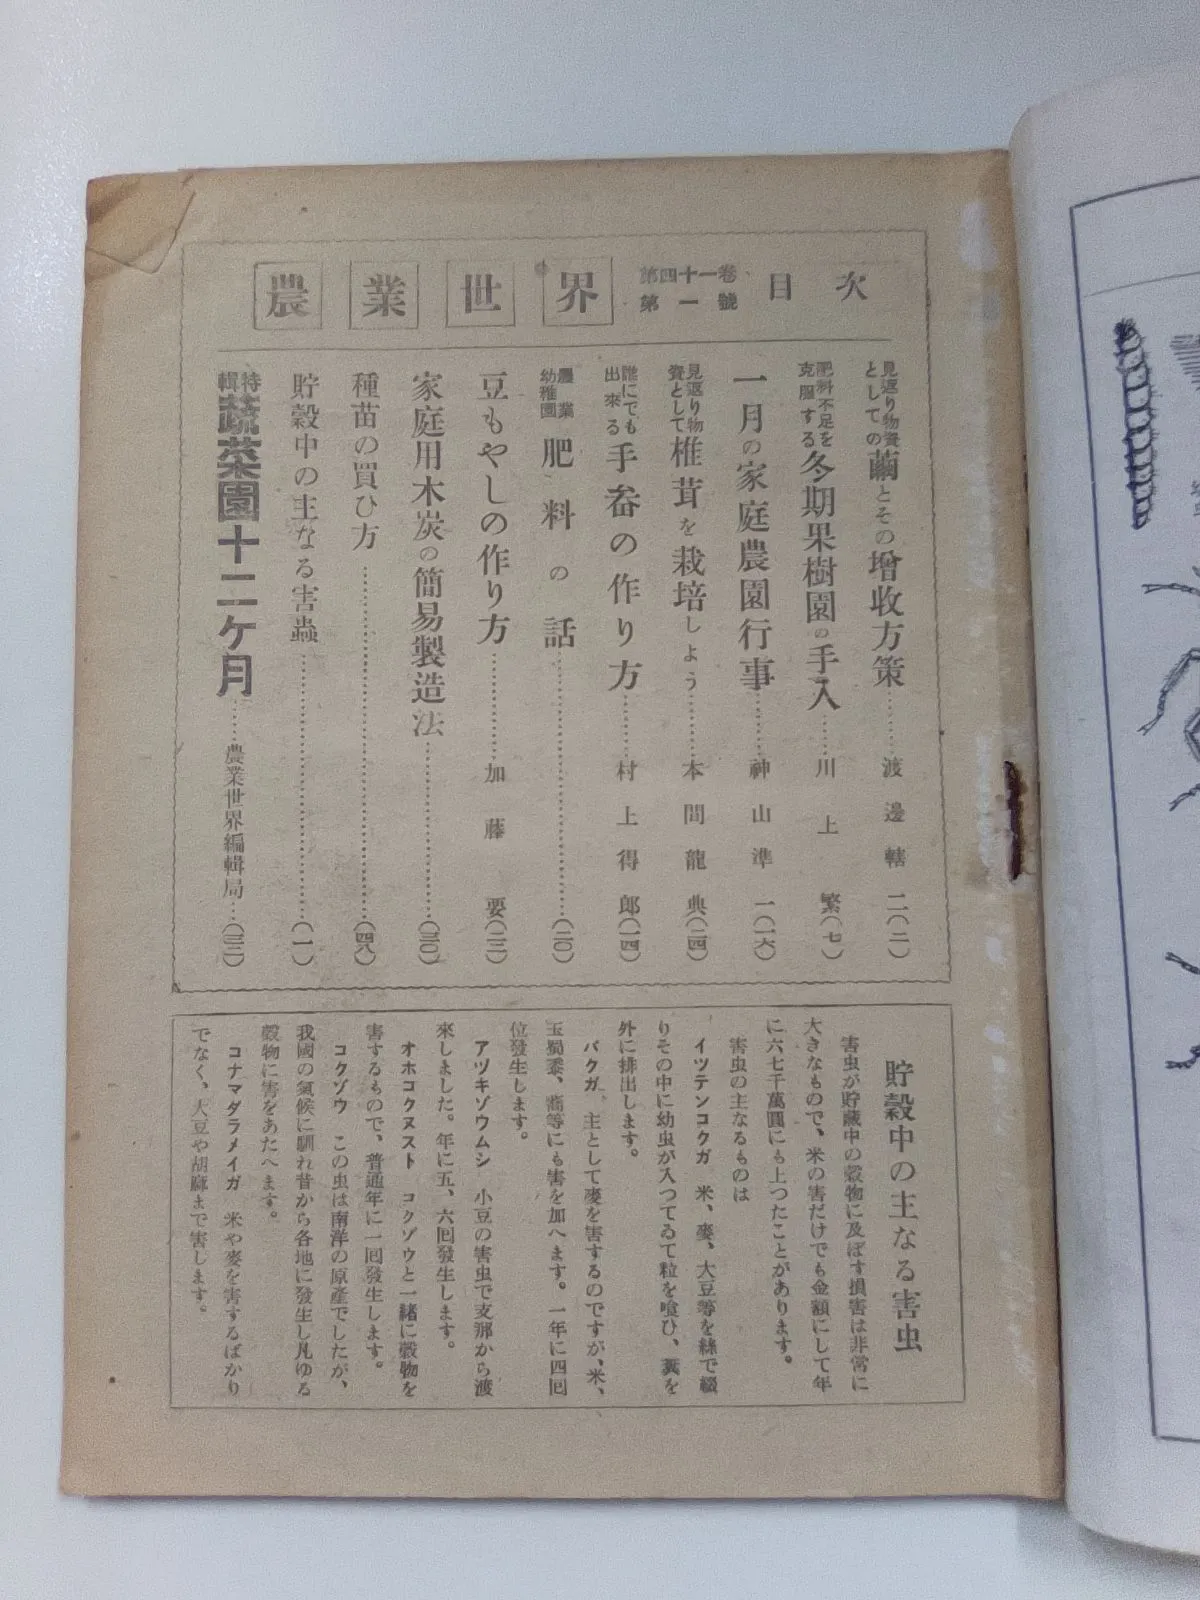 農業世界 第四十一卷 第一號 目次
見返り物資としての 繭とその增收方策………渡邊轄二(二)
肥料不足を克服する 冬期果樹園の手入……川上繁(七)
一月の家庭農園行事………神山準一(一六)
見返り物資として 椎茸を栽培しよう………本間龍典(二四)
誰にでも出來る 手畚の作り方………村上得郎(一四)
農業幼稚園 肥料の話………(二〇)
豆もやしの作り方………加藤要(二三)
家庭用木炭の簡易製造法………(三〇)
種苗の買ひ方………(四八)
貯穀中の主なる害蟲………(一)
特輯 蔬菜園十二ケ月……農業世界編輯局…(三三)
貯穀中の主なる害虫
害虫が貯藏中の穀物に及ぼす損害は非常に
大きなもので、米の害だけでも金額にして年
に六七千萬圓にも上つたことがあります。
害虫の主なるものは
イツテンコクガ 米、麥、大豆等を絲で綴
りその中に幼虫が入つてゐて粒を喰ひ、糞を
外に排出します。
バクガ 主として麥を害するのですが、米、
玉蜀黍、稱等にも害を加へます。一年に四回
位發生します。
アヅキゾウムシ 小豆の害虫で支那から渡
來しました。年に五、六回發生します。
オホコクヌスト コクゾウと一緒に穀物を
害するもので、普通年に一回發生します。
コクゾウ この虫は南洋の原產でしたが、
我國の氣候に馴れ昔から各地に發生し凡ゆる
穀物に害をあたへます。
コナマダラメイガ 米や麥を害するばかり
でなく、大豆や胡麻まで害します。